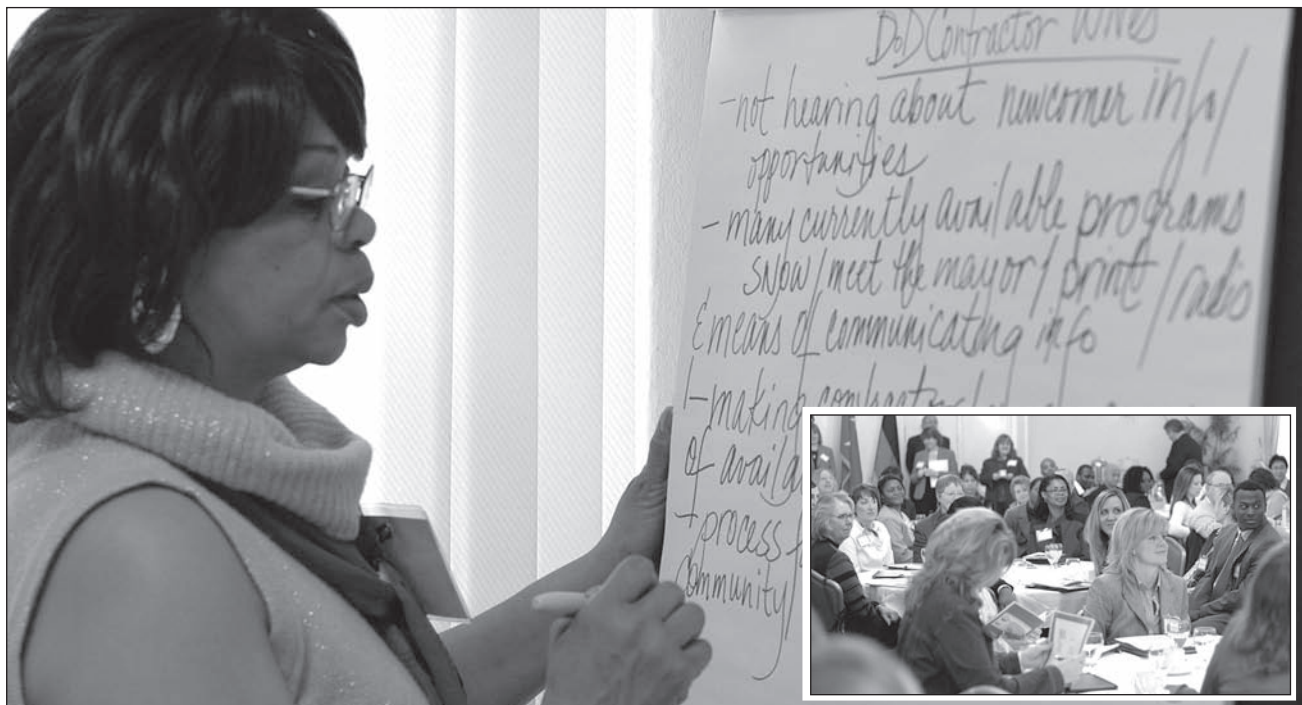 DoD Contractor Wives
-not hearing about newcomer info/
opportunities
-many currently available programs
/meet the mayor/print/radio
& means of communicating info
-making
of
process
community/